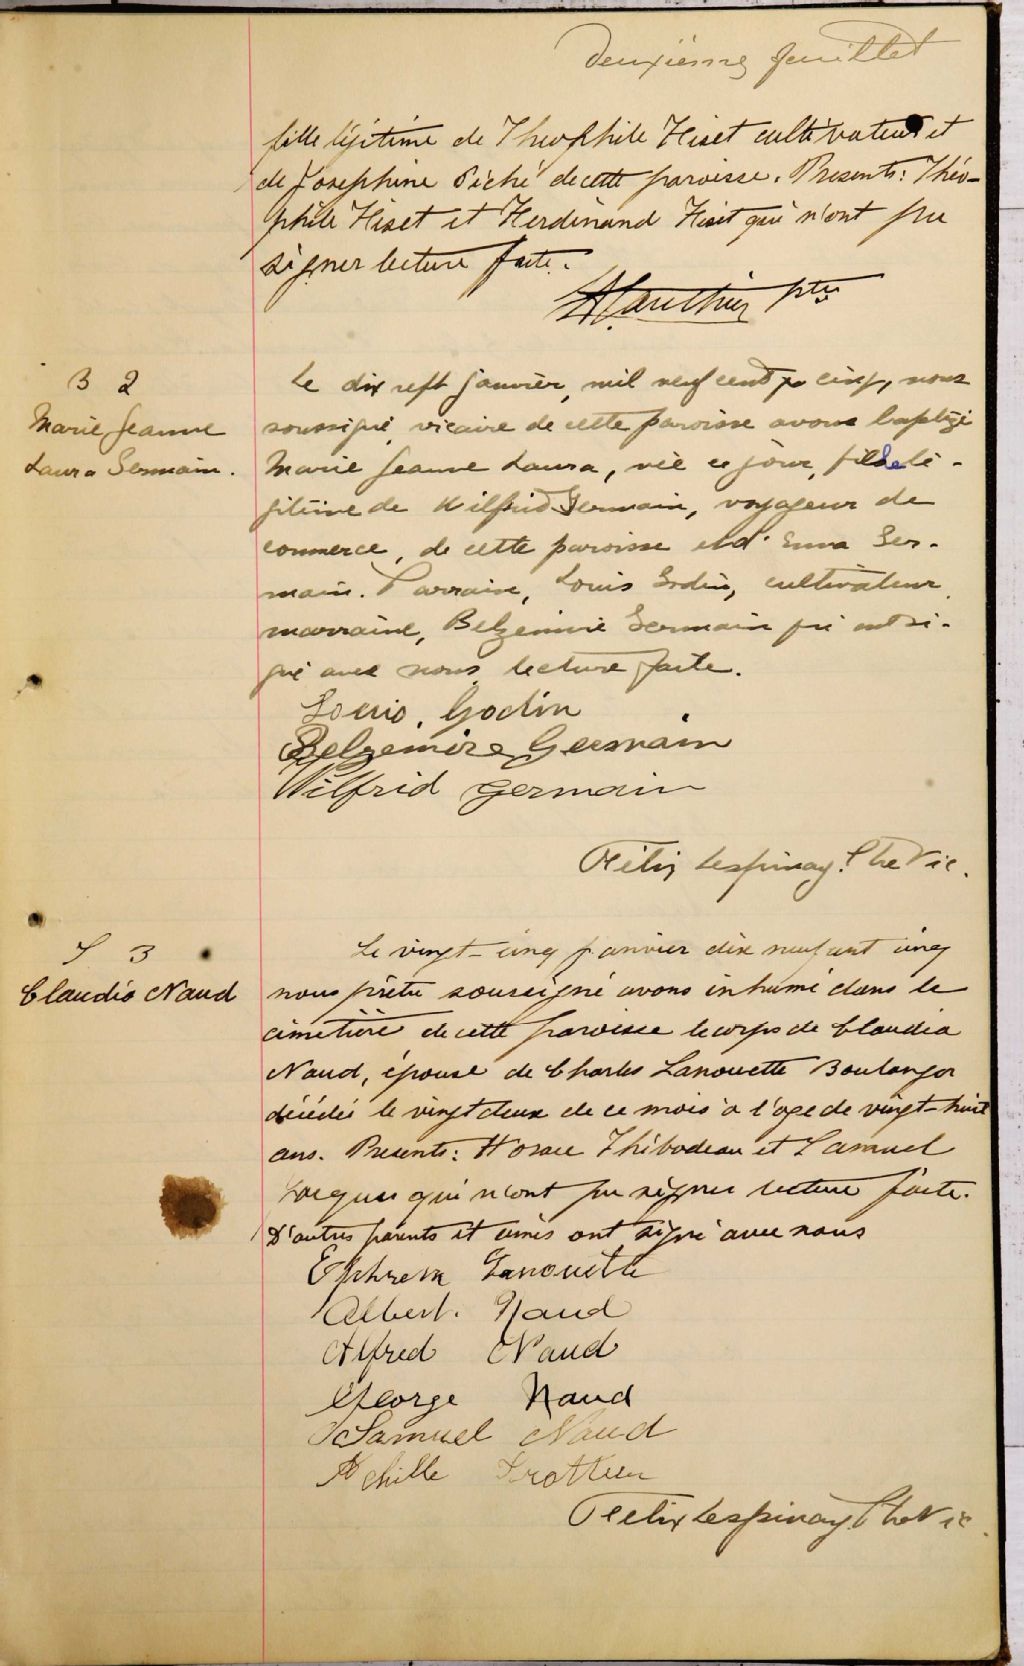 Deuxième feuillet
fille légitime de Théophile Hiset cultivateur et
de Josephine Piché de cette paroisse. Presents: Théo-
phile Hiset et Herdinand Hiset qui n'ont pu
signer lecture faite.
Gauthier ptre
B 2
Marie Jeanne
Laura Germain.
Le dix sept janvier, mil neuf cent cinq, nous
soussigné, vicaire de cette paroisse avons baptizé
Marie Jeanne Laura, née ce jour, fille lé-
gitime de Wilfrid Germain, voyageur de
commerce, de cette paroisse et d'Emma Ger-
main. Parrain, Louis Godin, cultivateur,
marraine, Belzemire Germain qui ont si-
gné avec nous, lecture faite.
Louis. Godin
Belzemire Germain
Wilfrid Germain
Félix Lespinay Ptre Vic.
S 3
Claudia Naud
Le vingt-cinq janvier dix neuf cent cinq
nous prêtre sousseigné avons inhumé dans le
cimetière de cette paroisse le corps de Claudia
Naud, épouse de Charles Lanouette Boulanger
décédée le vingt deux de ce mois a l'age de vingt-huit
ans. Presents: Horace Thibodeau et Samuel
Jacques qui n'ont pu signer lecture faite.
D'autres parents et amis ont signé avec nous
Ephrem Lanouette
Albert. Naud
Alfred Naud
George Naud
Samuel Naud
Achille Trottier
Félix Lespinay Ptre Vic.